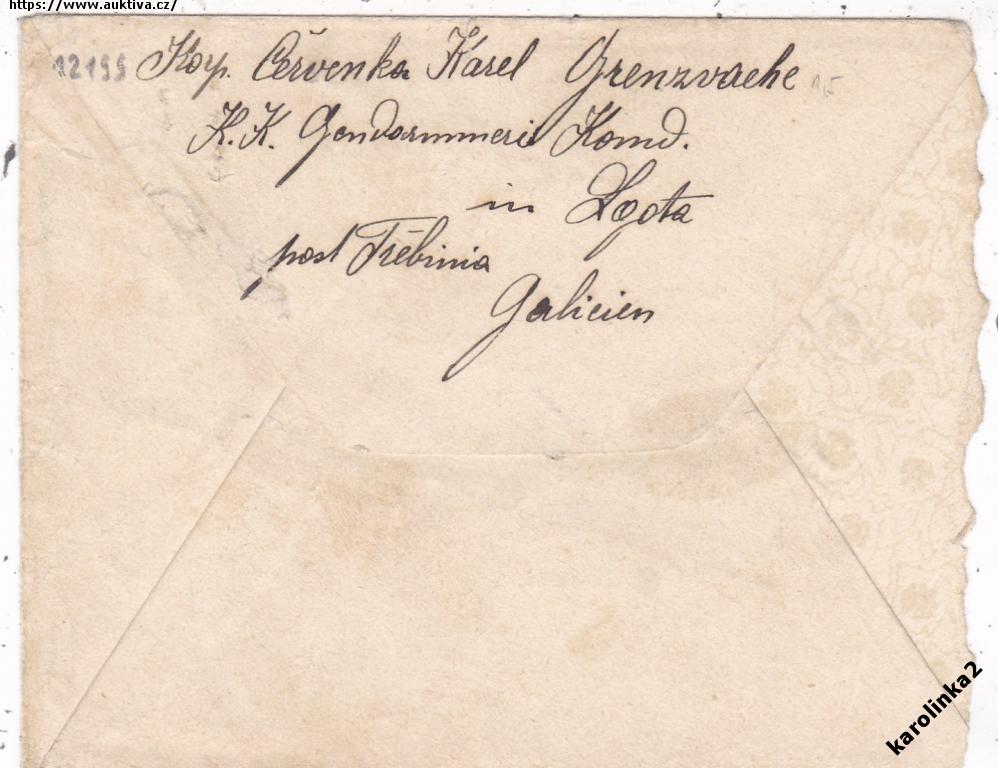 https://www.auktiva.cz/
12199 Korp. Červenka Karel Grenzvache
K.K. Gendarmmerie Komd.
in Lgota
post Třebinia
Galicien
karolinka2